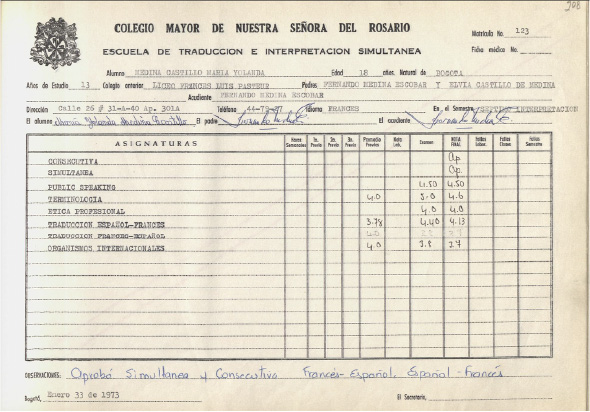 308
COLEGIO MAYOR DE NUESTRA SEÑORA DEL ROSARIO
Matrícula No. 123
ESCUELA DE TRADUCCION E INTERPRETACION SIMULTANEA
Ficha médica No.
Alumno MEDINA CASTILLO MARIA YOLANDA Edad 18 años. Natural de BOGOTA
Años de Estudio 13 Colegio anterior LICEO FRANCES LUIS PASTEUR Padres FERNANDO MEDINA ESCOBAR Y ELVIA CASTILLO DE MEDINA
Acudiente FERNANDO MEDINA ESCOBAR
Dirección Calle 26 # 31-A-40 Ap. 301A Teléfono 44-79-37 Idioma FRANCES En el Semestre SEPTIMO INTERPRETACION
El alumno María Yolanda Medina Castillo El padre El acudiente
ASIGNATURAS Horas Semanales 1a. Previa 2a. Previa 3a. Previa Promedio Previas Nota Lab. Examen NOTA FINAL Fallas Labor. Fallas Clases Fallas Semestre
CONSECUTIVA Ap.
SIMULTANEA Ap.
PUBLIC SPEAKING 4.50 4.50
TERMINOLOGIA 4.0 5.0 4.6
ETICA PROFESIONAL 4.0 4.0
TRADUCCION ESPAÑOL-FRANCES 3.78 4.40 4.13
TRADUCCION FRANCES-ESPAÑOL 4.0
ORGANISMOS INTERNACIONALES 4.0 2.8
OBSERVACIONES: Aprobó Simultanea y Consecutiva Francés-Español, Español-Francés
Bogotá, Enero 33 de 1973 El Secretario,